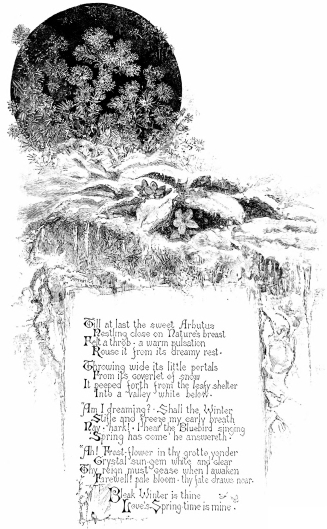 Till at last the sweet Arbutus
Nestling close on Nature's breast
Felt a throb - a warm pulsation
Rouse it from its dreamy rest.
Throwing wide its little portals
From its coverlet of snow
It peeped forth from the leafy shelter
Into a valley white below.
Am I dreaming? - Shall the Winter
Stifle and freeze my early breath
Nay - hark! - I hear the Bluebird singing
Spring has come he answereth -
"Ah! Frost-flower in thy grotto yonder
Crystal sun-gem white and clear
Thy reign must cease when I awaken
Farewell! pale bloom - thy fate draws near.
Bleak Winter is thine
Love's Spring-time is mine.